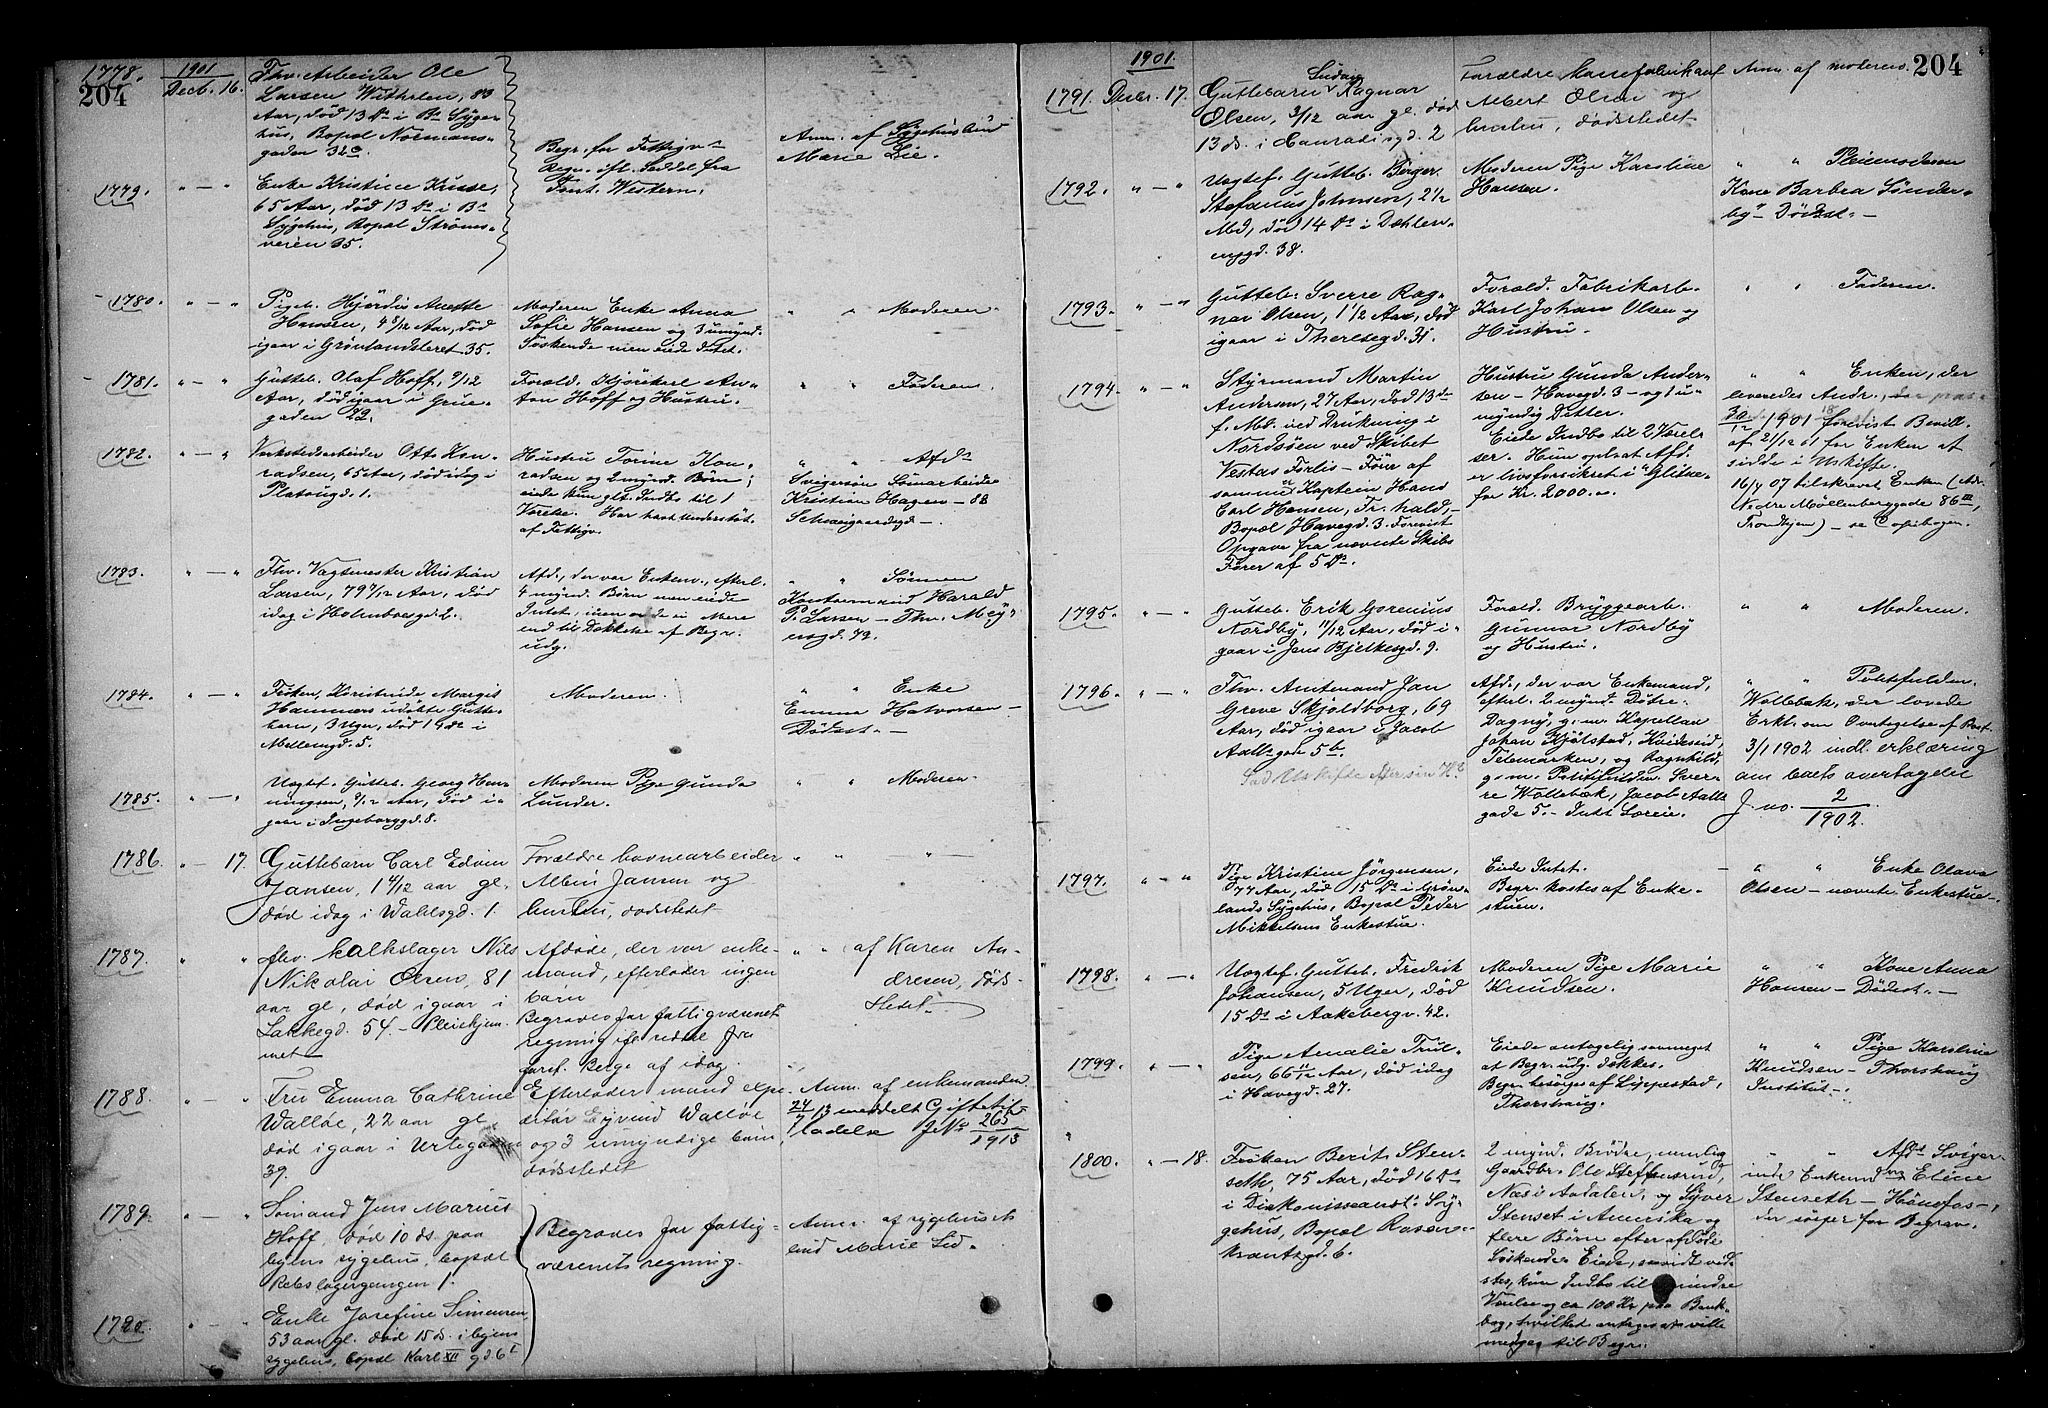 1778.
204
1901
Decb. 16.
Fhv. Arbeider Ole
Larsen
Aar, død 13 Ds i Bs Syge-
hus, Bopæl Normans-
gaden 32
Begr. for Fattigv.
Regn. ifl. Seddel fra
Inst. Western.
Anm. af Sygehusbud
Marie Lie.
1779.
" — "
Enke Kristine Kusse,
65 Aar, død 13 Ds i Bs
Sygehus, Bopæl Strøms-
veien 35.
1780.
" — "
Pigeb. Hjørdis Anette
Hansen, 4 8/12 Aar, død
igaar i Grønlandsleret 35.
Moderen Enke Anna
Sofie Hansen og 3 umynd.
Søskende men eiede Intet.
" " Moderen.
1781.
" — "
Gutteb. Olaf Hoff, 9/12
Aar, død igaar i Grue-
gaden
Foræld. Kjørekarl An-
ton Hoff og Hustru.
" " Faderen.
1782.
" — "
Verkstedarbeider Otto Kon-
radsen, 65 Aar, død idag i
Platougd. 1.
Hustru Torine Kon-
radsen og 2 mynd. Børn;
eiede kun glt. Indbo til 1
Værelse. Har havt Understøt.
af Fattigv.
" " Afds
Svigersøn Sømarbeider
Kristian Hagen – 88
Schweigaardsgd –.
1783.
" — "
Fhv. Vagtmester Kristian
Larsen, 79 7/12 Aar, død
idag i Holmboesgd. 2.
Afd., der var Enkem., efterl.
4 mynd. Børn men eiede
Intet, i Mere
end til Dækkelse af Begr.
udg.
" " Sønnen
Kontormand Harald
P. Larsen – Thv. Mey-
ersgd.
1784.
" — "
Frøken Margit
Hammers udøbte Gutte-
barn, 3 Uger, død 14 Ds i
Møllersgd. 5.
Moderen.
" " Enke
Emma Halvorsen –
Dødsst. –
1785.
" — "
Uægtef. Gutteb. Georg Hen-
ningsen, 9/12 Aar, død i-
gaar i Ingeborggd. 8.
Moderen Pige Gunda
Lunder.
" " Moderen.
1786.
" — 17.
Guttebarn Carl Edvin
Jansen, 1 4/12 aar gl.
død idag i Wahlsgd. 1.
Forældre havnearbeider
Albin Jansen og
hustru, dødsstedet
" " " —
1787.
" "
fhv. kalkslager Nils
Nikolai Olsen, 81
aar gl, død igaar i
Lakkegd. 54. – Pleiehjem-
met
Afdøde, der var enke-
mand, efterlader ingen
børn
Begraves for fattigvæsenets
regning ifl. seddel fra
foref. Berge af idag.
" " af Karen An-
dresen, døds-
stedet.
1788.
" — "
Fru Emma Cathrine
Walløe, 22 aar gl.,
død igaar i Urtegaden
39.
Efterlader mand expe-
ditør Eyvind Walløe
og 3 umyndige børn,
dødsstedet
Anm. af enkemanden.
24/7 13 meddelt Giftetil-
ladelse J.No 265/1913
1789.
" — "
Sømand Jens Marius
Hoff, død 10 ds. paa
byens sygehus, bopæl
Rebslagergangen 1.
Begraves for fattig-
væsenets regning.
Anm. af sygehusets
bud Marie Lie.
1790.
" — "
Enke Josefine Simensen
53 aar gl. død 15 ds. i byens
sygehus, bopæl Karl XII gd 6
1901.
204
1791.
Decbr. 17.
Ludvig
Guttebarn Ragnar
Olsen, 3/12 aar gl. død
13 ds. i Conradisgd. 2
Forældre
Albert Olsen og
hustru, dødsstedet
Anm. af moderen.
1792.
" — "
Uægtef. Gutteb. Birger
Stefanus Johnsen, 2 1/2
Md, død 14 Ds i Dæhlen-
enggd. 38.
Moderen Pige Karoline
Hansen.
" " Pleiemoderen
Kone Barbra Sønder-
by – Dødsst. –
1793.
" — "
Gutteb. Sverre Rag-
nar Olsen, 1 1/2 Aar, død
igaar i Theresegd. 31.
Foræld. Fabrikarb.
Karl Johan Olsen og
Hustru.
" " Faderen.
1794.
" — "
Styrmand Martin
Andersen, 27 Aar, død 13 ds
f. Md. ved Drukning i
Nordsøen ved Skibet
Vestas Forlis – Fører af
samme Kaptein Hans
Carl Hansen, Fr.hald, –
Bopæl Havegd. 3. Forevist
Opgave fra nævnte Skibs
Fører af 5 Ds.
Hustru Gunda Ander-
sen – Havegd. 3 – og 1 u-
myndig Datter.
Eiede Indbo til 2 Værel-
ser. Hun oplyst Afd.
er livsforsikret i "Glitne"
for Kr. 2000.
" " Enken, der
leveredes Andr.,
30/12 1901 forevist Bevill.
af 21/12 01 for Enken at
sidde i Uskifte.
16/4 07 tilskrevet Enken (Adr.
Nedre Møllenberggade 86 III,
Trondhjem) – se Copibogen.
1795.
" — "
Gutteb. Erik Gorenius
Nordby, 11/12 Aar, død i-
gaar i Jens Bjelkesgd. 9.
Foræld. Bryggearb.
Gunnar Nordby
og Hustru.
" " Moderen.
1796.
" — "
Fhv. Amtmand Jan
Greve Skjoldborg, 69
Aar, død igaar i Jacob
Aallsgade 5b.
Sad i Uskifte efter sin H.
Afd., der var Enkemand,
efterl. 2 mynd. Døtre:
Dagny, g. m. Kapellan
Johan Kjølstad, Kviteseid,
Telemarken, og Ragnhild,
g. m. Politifuldm. Sver-
re Wollebæk, Jacob Aalls
gade 5. – Intet Særeie.
" " Politifuldm.
Wollebæk, der lovede
Erkl. om Overtagelse af Boet.
3/1 1902 indl. erklæring
om boets overtagelse
J. no. 2/1902.
1797.
" — "
Pige Kristine Jørgensen,
77 Aar, død 15 Ds i Grøn-
lands Sygehus, Bopæl Peder
Mikkelsens Enkestue.
Eiede Intet.
Begr. kostes af Enke-
stuen.
" " Enke Olava
Olsen – nævnte Enkestue –.
1798.
" — "
Uægtef. Gutteb. Fredrik
Johansen, 5 Uger, død
15 Ds i Aakebergv. 42.
Moderen Pige Marie
Knudsen.
" " Kone Anna
Hansen – Dødsst. –
1799.
" — "
Pige Amalie Trul-
sen, 66 1/12 Aar, død idag
i Havegd. 27.
Eiede antagelig saameget
at Begr. udg. dækkes.
Begr. besørges af Lippestad,
Thorshaug.
" " Pige Karoline
Knudsen – Thorshaug
Institut –.
1800.
" — 18.
Frøken Berit Sten-
seth, 75 Aar, død 16 Ds
i Diakonisseanst. Sy-
gehus, Bopæl Rosen-
krantzgd. 6.
2 mynd. Brødre, nemlig
Gaardbr. Ole Steffensrud,
Næs i Aadalen, og Syver
Stenset i Amerika og
flere Børn efter afdøde
Søskende. Eiede, saavidt vid-
stes, kun Indbo til mindre
Værelse og ca 100 Kr paa Bank-
bog, hvilket antages at ville
medgaa til Begr.
" " Afds Sviger-
inde Enkemd Eline
Stenseth – Hønefos –,
der sørger for Begrav.